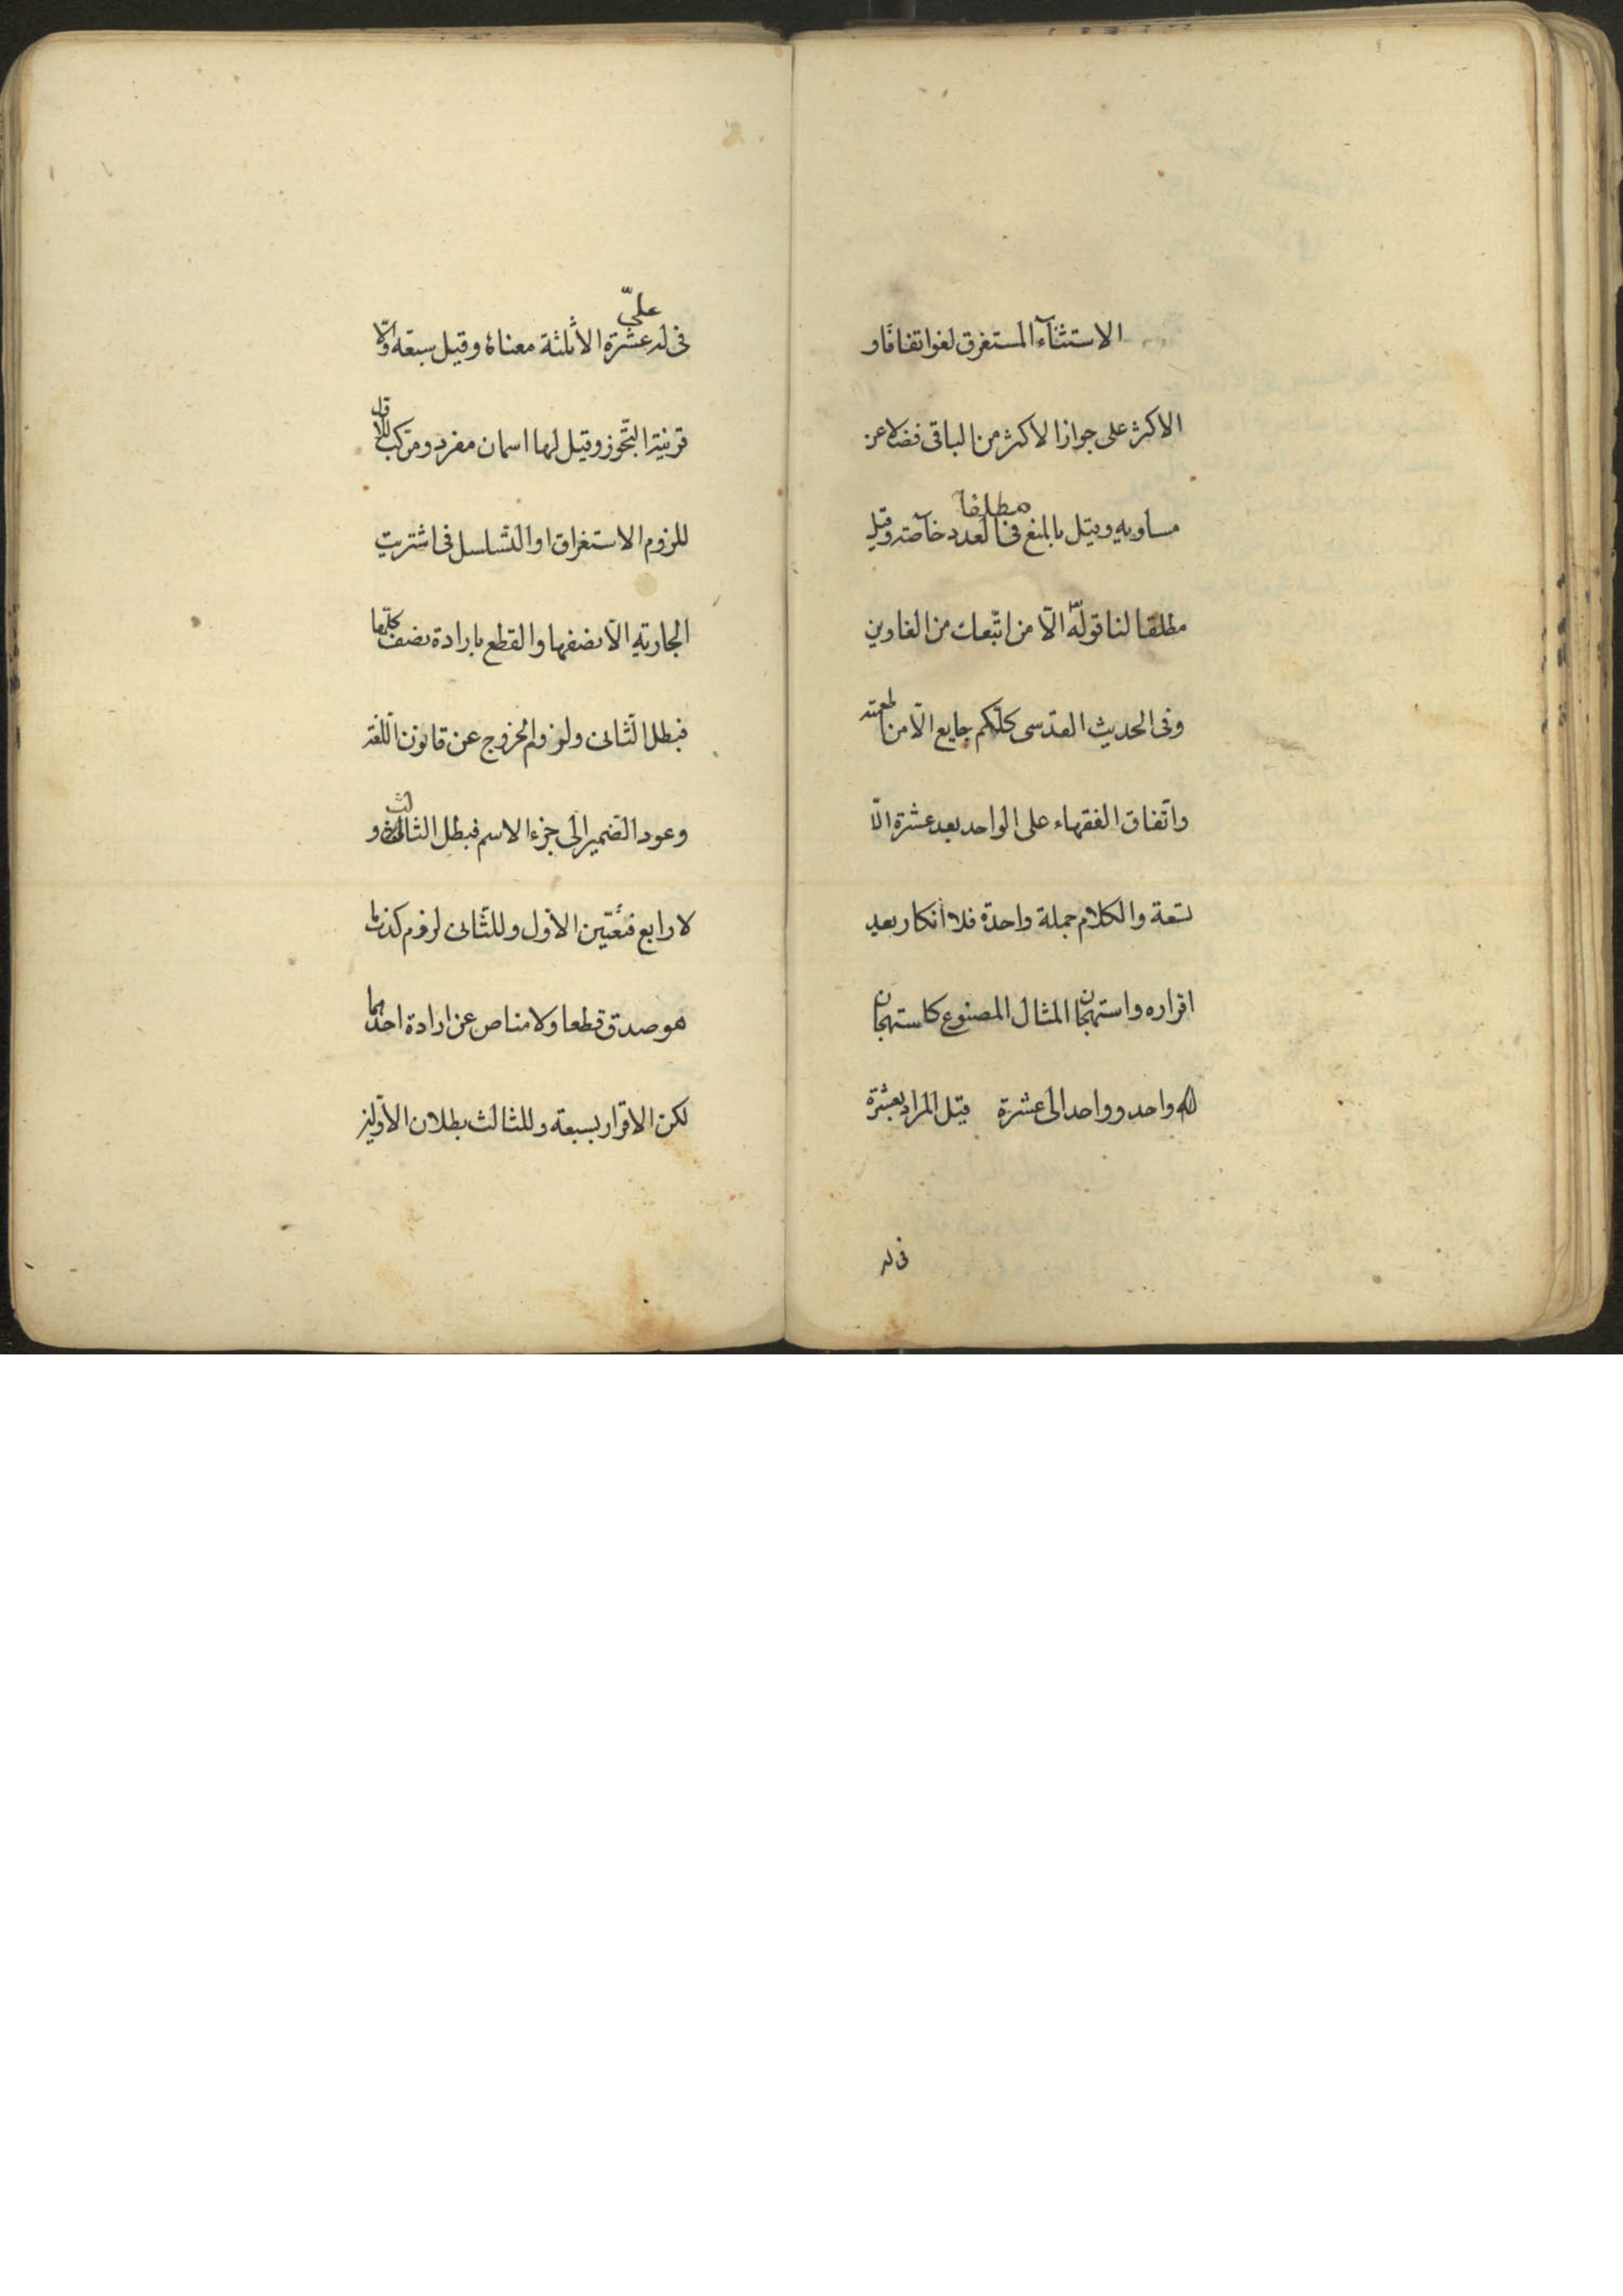 الاستثناء المستغرق لغو اتفاقا و
الاكثر على جواز الاكثر من الباقى فضلا عن
مطلقا
مساويه وقيل بالمنع فى العدد خاصة وقيل
مطلقا لنا قوله الّا من اتّبعك من الغاوين
وفى الحديث القدسى كلّكم جايع الّا من اطعمته
واتّفاق الفقهاء على الواحد بعد عشرة الّا
تسعة والكلام جملة واحدة فلا انكار بعد
اقراره واستهجان المثال المصنوع كاستهجان
له واحد وواحد الى عشرة قيل المراد بعشرة
فى له
علىّ
فى له عشرة الا ثلثة معناه وقيل سبعة والّا
قرينة التّجوز وقيل لها اسمان مفرد ومركب للاول
للزوم الاستغراق او التّسلسل فى اشتريت
الجارية الّا نصفها والقطع بارادة نصف كلّها
فبطل الثّانى ولزوم الخروج عن قانون اللّغة
وعود الضّمير الى جزء الاسم فبطل الثالث و
لا رابع فتعّين الاوّل وللثّانى لزوم كذب ما
هو صدق قطعا ولا مناص عن ارادة احدهما
لكن الاقرار بسبعة وللثالث بطلان الاوّلين